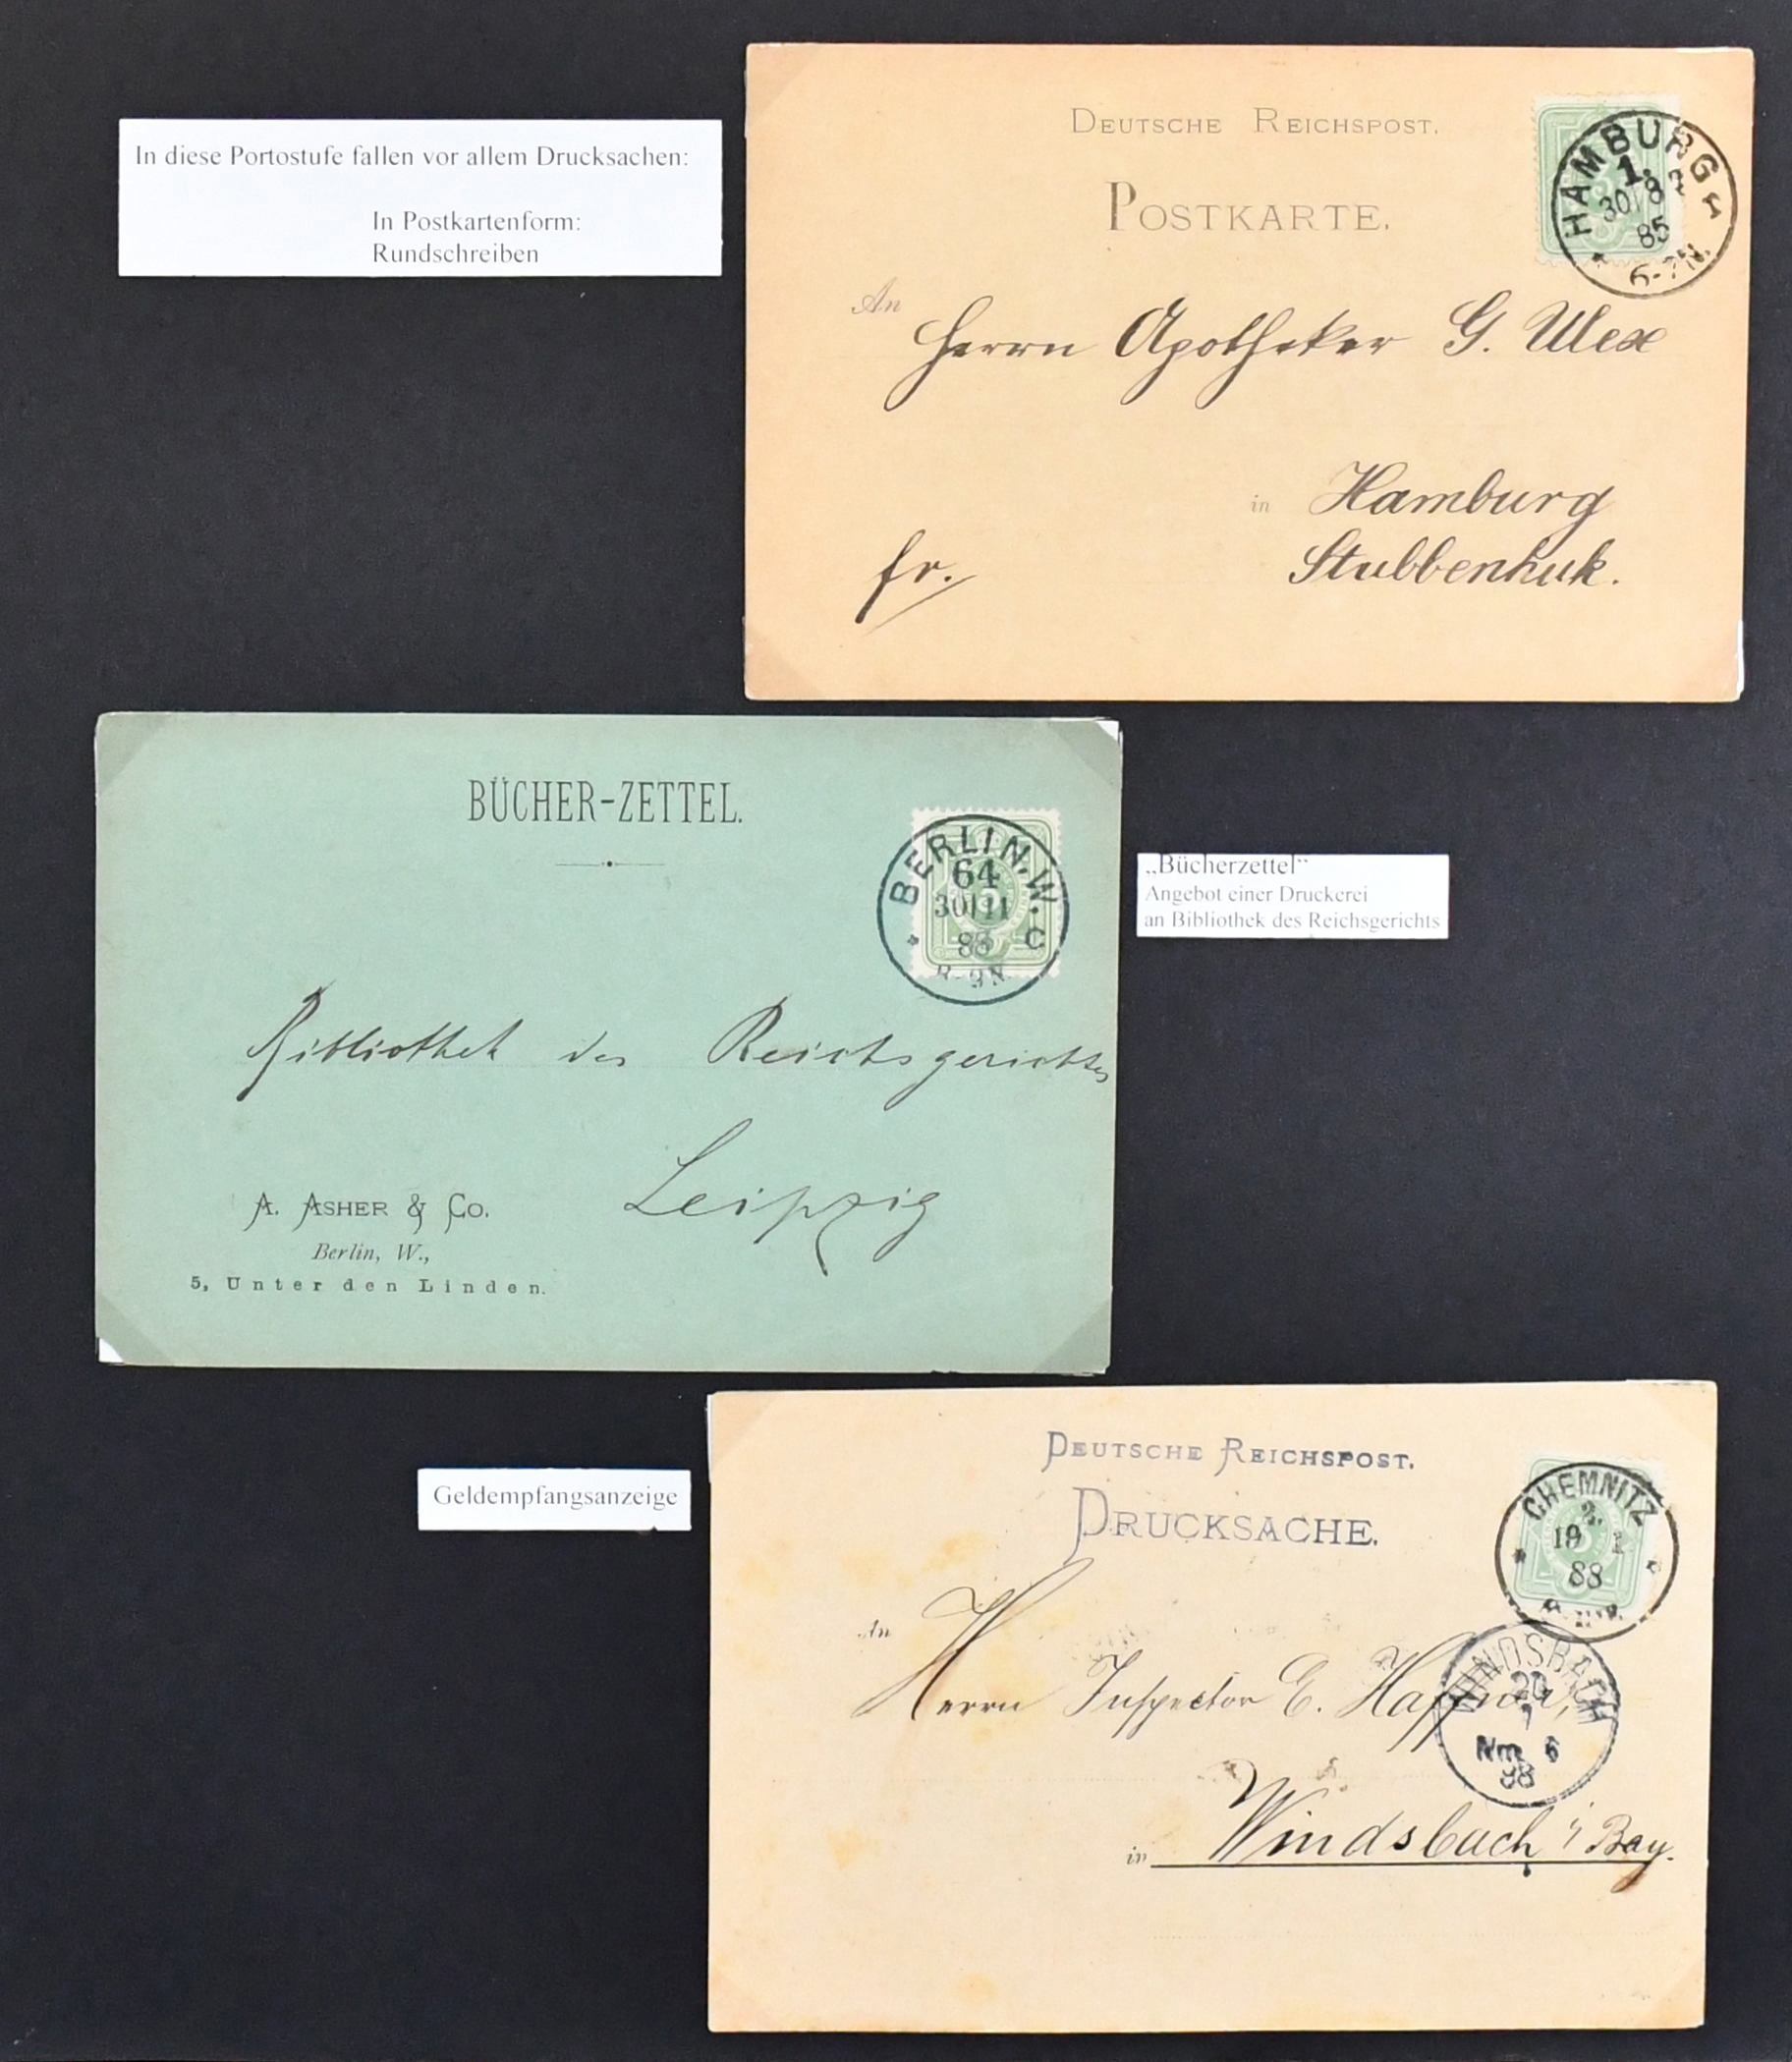 In diese Portostufe fallen vor allem Drucksachen:
In Postkartenform:
Rundschreiben
DEUTSCHE REICHSPOST.
POSTKARTE.
HAMBURG
1.
30/8
85
6-7N.
An
Herrn Apotheker G. Ulex
in Hamburg
Stubbenhuk.
fr.
BÜCHER-ZETTEL.
BERLIN, W.
64
30/11
88
C
8-9N.
Bibliothek des Reichsgerichtes
Leipzig
A. ASHER & CO.
Berlin, W.,
5, Unter den Linden.
„Bücherzettel“
Angebot einer Druckerei
an Bibliothek des Reichsgerichts
Geldempfangsanzeige
DEUTSCHE REICHSPOST.
DRUCKSACHE.
CHEMNITZ
2.
19 1
88
An
Herrn Inspector E. Haffner,
WINDSBACH
20
1
Nm 6
88
in Windsbach i/Bay.